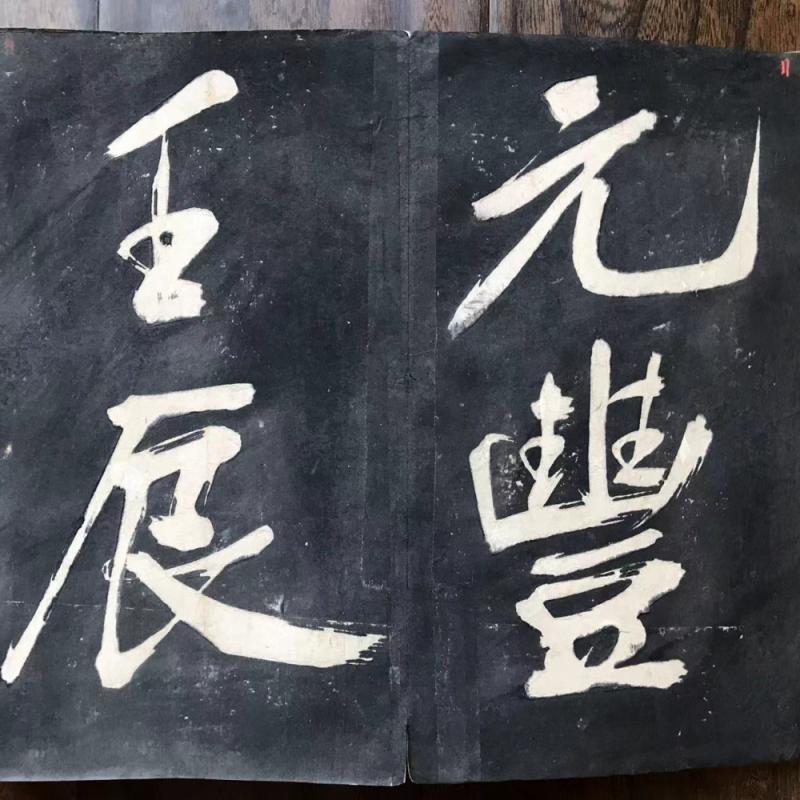 元豐
壬辰